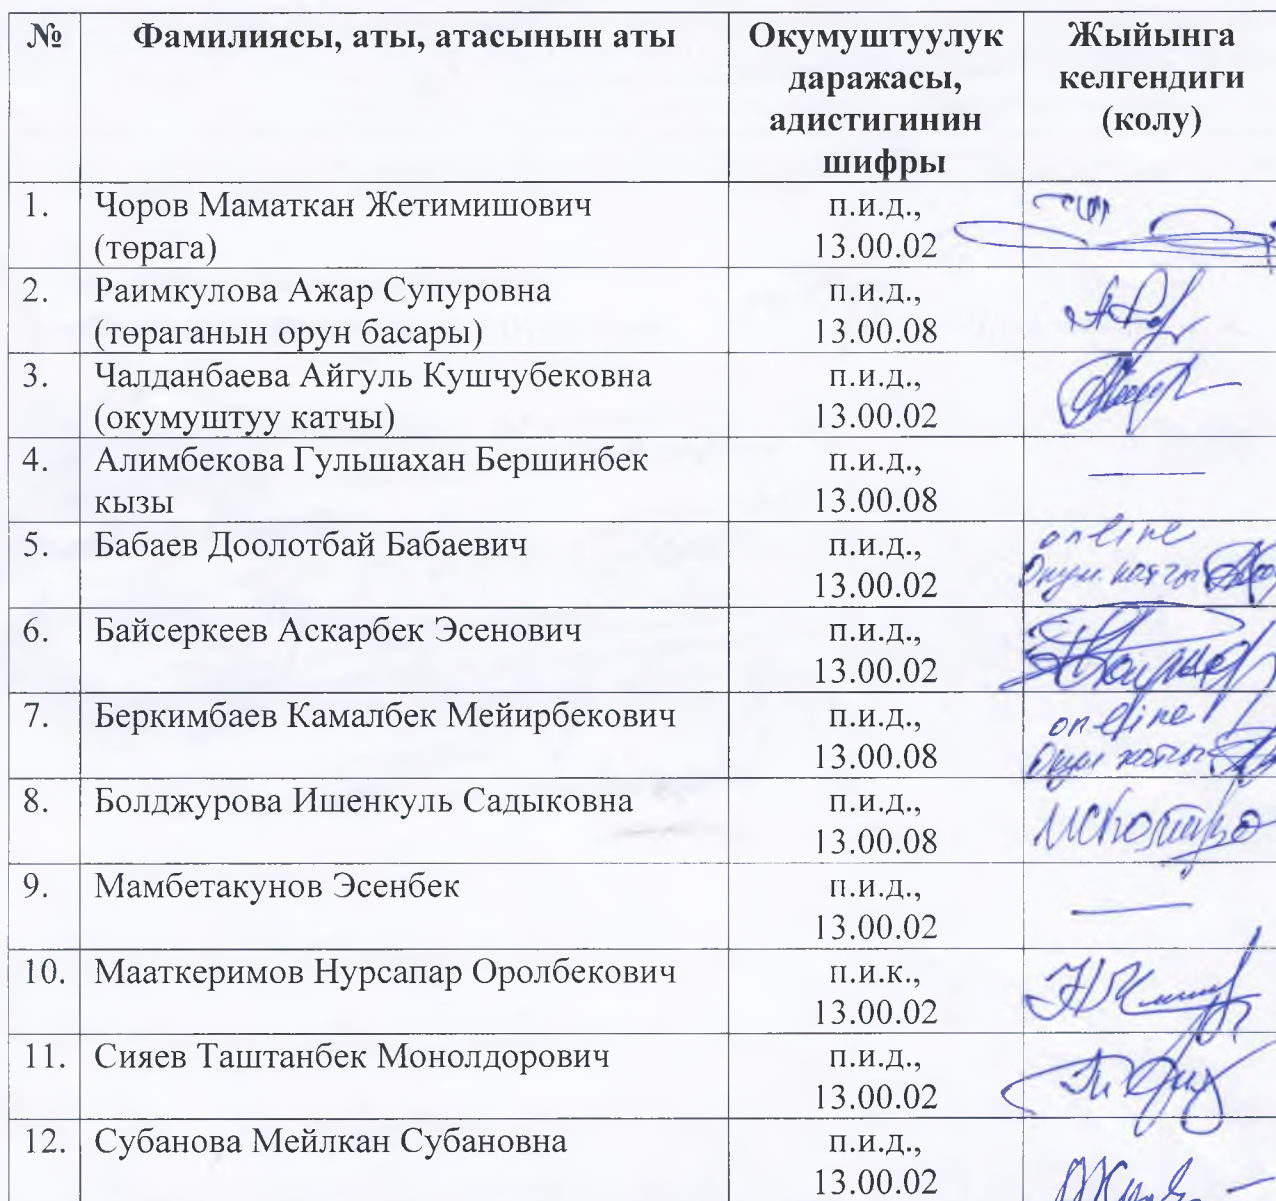 № Фамилиясы, аты, атасынын аты Окумуштуулук Жыйынга
даражасы, келгендиги
адистигинин (колу)
шифры
1. Чоров Маматкан Жетимишович п.и.д.,
(төрага) 13.00.02
2. Раимкулова Ажар Супуровна п.и.д.,
(төраганын орун басары) 13.00.08
3. Чалданбаева Айгуль Кушчубековна п.и.д.,
(окумуштуу катчы) 13.00.02
4. Алимбекова Гульшахан Бершинбек п.и.д.,
кызы 13.00.08
5. Бабаев Доолотбай Бабаевич п.и.д., online
13.00.02 Окум. катчы
6. Байсеркеев Аскарбек Эсенович п.и.д.,
13.00.02
7. Беркимбаев Камалбек Мейирбекович п.и.д., online
13.00.08 Окум катчы
8. Болджурова Ишенкуль Садыковна п.и.д.,
13.00.08
9. Мамбетакунов Эсенбек п.и.д.,
13.00.02
10. Мааткеримов Нурсапар Оролбекович п.и.к.,
13.00.02
11. Сияев Таштанбек Монолдорович п.и.д.,
13.00.02
12. Субанова Мейлкан Субановна п.и.д.,
13.00.02